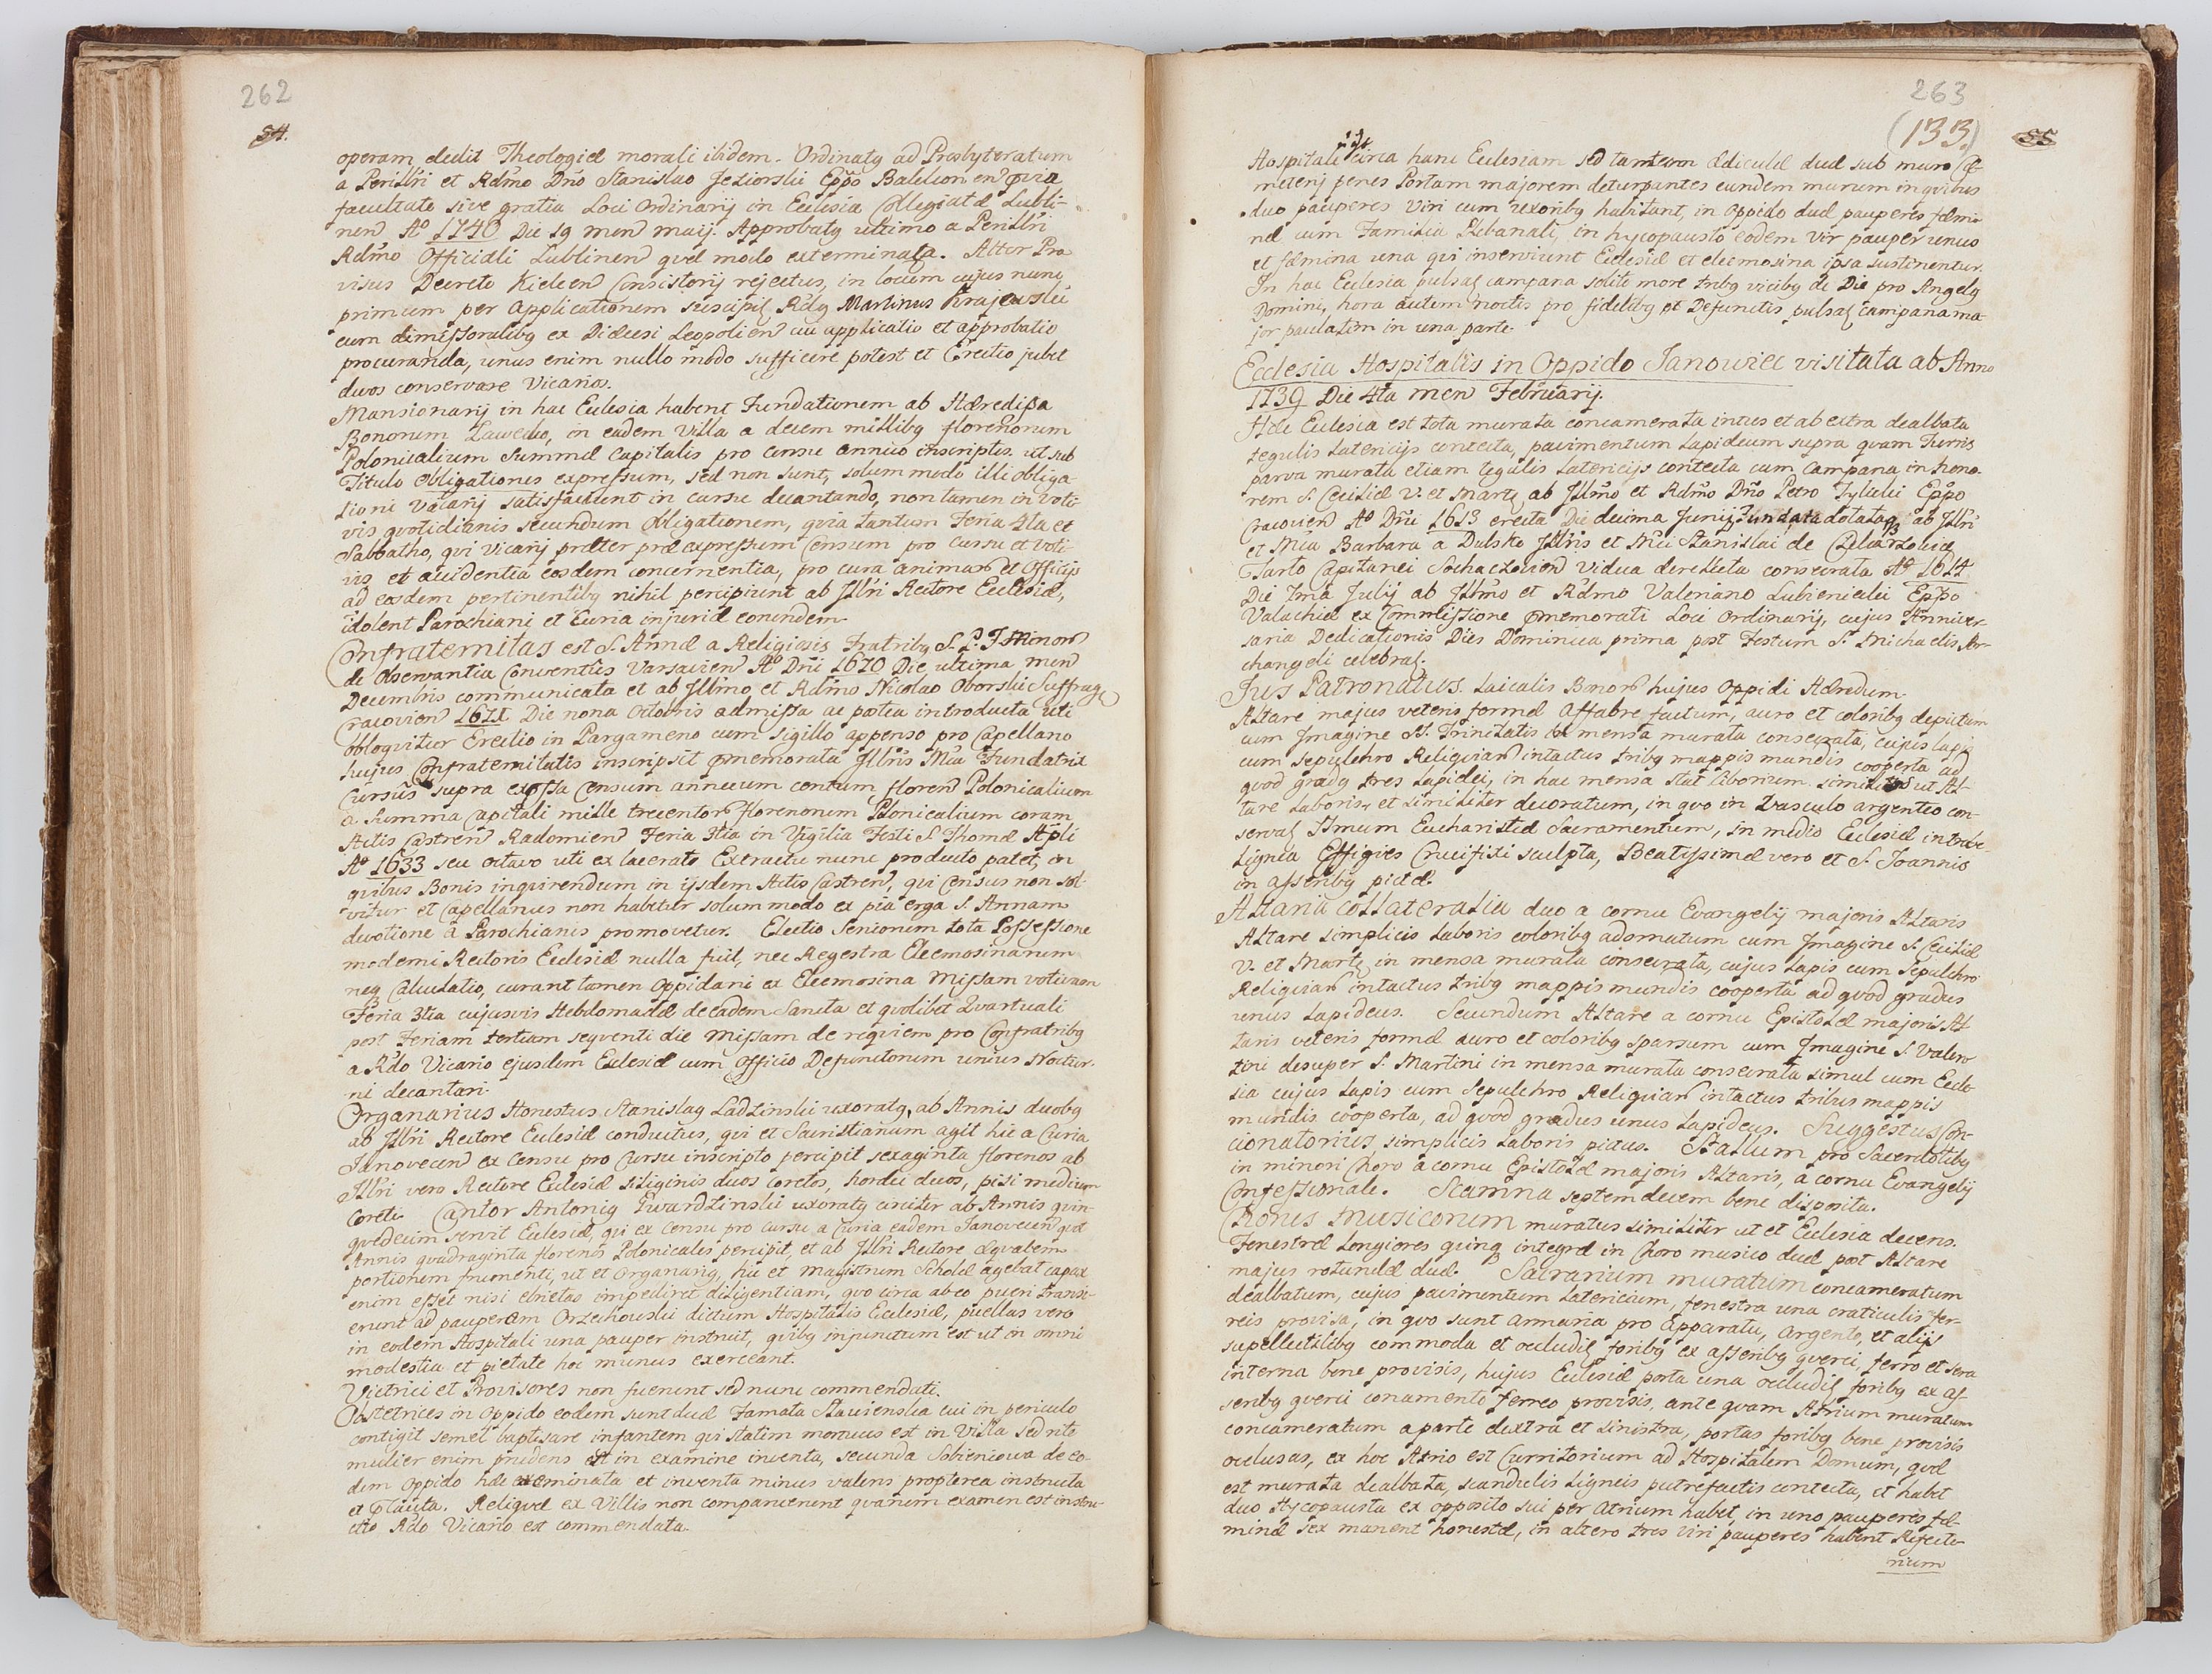 262
54.
operam dedit Theologiæ morali ibidem. Ordinatq ad Presbyteratum
a Perillri et Rdmo Dno Stanislao Jeziorski Eppo
facultate sive gratia Loci Ordinarij in Ecclesia Collegiatæ Lubli-
nen Ao 1740 Die 19 men maij. Approbatq ultimo a Perillri
Rdmo Officiali Lublinen quæ modo exterminata. Alter Pro
visus Decreto Kielcen Consistorij rejectus, in locum cujus nunc
primum per Applicationem suscipit Rdq Martinus Krajewski
cum dimissorialibq ex Diæcesi Leopolien cui applicatio et approbatio
procuranda, unus enim nullo modo sufficere potest et Erectio jubet
duos conservare Vicarios.
Mansionarij in hac Ecclesia habent Fundationem ab Hæredissa
Bonorum Zawedo, in eadem Villa a decem millibq florenorum
Polonicalium Summæ Capitalis pro Censu annuo inscriptis. ut sub
Titulo Obligationes expressum, sed non sunt, solum modo illi obliga-
tioni Vicarij satisfaciunt in cursu decantando, non tamen in voti-
vis quotidianis secundum Obligationem, quia tantum Feria 4ta et
Sabbatho, qui Vicarij præter præexpressum Censum pro Cursu et Voti-
vis et accidentia eosdem concernentia, pro cura animar et Officijs
ad eosdem pertinentibq nihil percipiunt ab Illri Rectore Ecclesiæ,
idolent Parochiani et Curia injuriæ eorundem.
Confraternitas est S. Annæ a Religiosis Fratribq S. P. F. Minor
de Observantia Conventûs Varsavien Ao Dni 1670 Die ultima men
Decembris communicata et ab Illmo et Rdmo Nicolao Oborski Suffrag
Cracovien 1671 Die nona Octobris admissa ac postea introducta uti
obloquitur Erectio in Pargameno cum sigillo appenso pro Capellano
hujus Confraternitatis inscripsit pmemorata Illris Mca Fundatrix
Cursûs supra expssa Censum annuum centum floren Polonicalium
a Summa Capitali mille trecentor florenorum Polonicalium coram
Actis Castren Radomien Feria 3tia in Vigilia Festi S Thomæ Apli
Ao 1633 seu octavo uti ex lacerato Extractu nunc producto patet, in
quibus Bonis inquirendum in ijsdem Actis Castren, qui Census non sol-
vitur et Capellanus non habetur solummodo ex pia erga S. Annam
devotione a Parochianis promovetur. Electio Seniorum tota Possessione
moderni Rectoris Ecclesiæ nulla fuit, nec Regestra Eleemosinarum
neq Calculatio, curant tamen Oppidani ex Eleemosina Missam votivam
Feria 3tia cujusvis Hebdomadæ de eadem Sancta et quolibet Quartuali
post Feriam tertiam sequenti die Missam de requiem pro Confratribq
a Rdo Vicario ejusdem Ecclesiæ cum Officio Defunctorum unius Noctur-
ni decantari.
Organarius Honestus Stanislaq Ladzinski uxoratq, ab Annis duobq
ab Illri Rectore Ecclesiæ conductus, qui et Sacristianum agit hic a Curia
Janovecen ex Censu pro Cursu inscripto percipit sexaginta florenos ab
Illri vero Rectore Ecclesiæ siliginis duos coretos, hordei duos, pisi medium
coreti. Cantor Antoniq Twardzinski uxoratq circiter ab Annis quin-
quedecim servit Ecclesiæ, qui ex Censu pro cursu a Curia eadem Janovecen quot
Annis quadraginta florenos Polonicales percipit, et ab Illri Rectore æqualem
portionem frumenti, ut et Organariq, hic et Magistrum Scholæ agebat capax
enim esset nisi ebrietas impediret diligentiam, quo circa ab eo pueri transi-
erunt ad pauperem Orzechowski dictum Hospitalis Ecclesiæ, puellas vero
in eodem Hospitali una pauper instruit, quibq injunctum est ut in omni
modestia et pietate hoc munus exerceant.
Victrici et Provisores non fuerunt sed nunc commendati.
Obstetrices in Oppido eodem sunt duæ Famata cui in periculo
contigit semel baptisare infantem qui statim mortuus est in Villa sed rite
mulier enim prudens est in examine inventa, secunda Sobieniowa de eo-
dem Oppido hæc examinata et inventa minus valens propterea instructa
et Reliquæ ex Villis non comparuerunt quarum examen est instru-
ctio Rdo Vicario est commendata.
263
(133.)
55
Hospitale circa hanc Ecclesiam sed tantum Ædiculæ duæ sub muro Cæ-
meterij penes Portam majorem deturpantes eundem murum in quibus
duo pauperes Viri cum uxoribq habitant, in Oppido duæ pauperes fæmi-
næ cum Familia in hypocausto eodem Vir pauper unus
et fæmina una qui inserviunt Ecclesiæ et eleemosina ipsa sustinentur.
In hac Ecclesia pulsat campana solito more tribq vicibq de Die pro Angelq
Domini, hora autem noctis pro fidelibq et Defunctis pulsat campana ma-
jor paulatim in una parte.
Ecclesia Hospitalis in Oppido Janowiec visitata ab Anno
1739 Die 4ta men Februarij.
Hæc Ecclesia est tota murata concamerata intus et ab extra dealbata
tegulis Latericijs contecta, pavimentum Lapideum supra quam Turris
parva murata etiam tegulis Latericijs contecta cum Campana in hono-
rem S. Ceciliæ V. et Martq ab Illmo et Rdmo Dno Petro Tylicki Eppo
Cracovien Ao Dni 1613 erecta Die decima Junij Fundata dotataq ab Illri
et Mca Barbara a Dulsko Illris et Mci Stanislai de
Tarło Capitanei Sochaczovien Vidua derelicta consecrata Ao 1614
Die 7ma Julij ab Illmo et Rdmo Valeriano Lubieniecki Eppo
Valachiæ ex Commissione pmemorati Loci Ordinarij, cujus Anniver-
saria Dedicationis Dies Dominica prima post Festum S. Michaelis Ar-
changeli celebrat.
Jus Patronatus. Laicalis Bonor hujus Oppidi Hæredum.
Altare majus veteris formæ affabre factum, auro et coloribq depictum
cum Imagine SS. Trinitatis mensa murata consecrata, cujus Lapis
cum sepulchro Reliquiar intactus tribq mappis mundis cooperta ad
quod gradq tres Lapidei, in hac mensa stat Ciborium similis ut Al-
tare Laboris, et similiter decoratum, in quo in Vasculo argenteo con-
servat SSmum Eucharistiæ Sacramentum, in medio Ecclesiæ in trabe
Lignea Effigies Crucifixi sculpta, Beatissimæ vero et S. Joannis
in asseribq pictæ.
Altaria collateralia duo a cornu Evangelij majoris Altaris
Altare simplicis Laboris coloribq adornatum cum Imagine S. Ceciliæ
V. et Martq in mensa murata consecrata, cujus Lapis cum Sepulchro
Reliquiar intactus tribq mappis mundis cooperta ad quod gradus
unus Lapideus. Secundum Altare a cornu Epistolæ majoris Al-
taris veteris formæ auro et coloribq sparsum cum Imagine S. Valen-
tini desuper S. Martini in mensa murata consecrata simul cum Eccle-
sia cujus Lapis cum Sepulchro Reliquiar intactus tribus mappis
mundis cooperta, ad quod gradus unus Lapideus. Suggestus Con-
cionatorius, simplicis Laboris pictus. Stallum pro Sacerdotibq
in minori Choro a cornu Epistolæ majoris Altaris, a cornu Evangelij
Confessionale. Scamna septemdecem bene disposita.
Chorus Musicorum muratus similiter ut et Ecclesia decens.
Fenestræ Longiores quinq integræ in Choro musico duæ post Altare
majus rotundæ duæ. Sacrarium muratum concameratum
dealbatum, cujus pavimentum Latericium, fenestra una craticulis fer-
reis provisa, in quo sunt armaria pro Apparatu, Argento, et alijs
supellectilibq commoda et occludit foribq ex asseribq querci, ferro et sera
interna bene provisis, hujus Ecclesiæ porta una occludit foribq ex as-
seribq querci conamento ferreo provisis, ante quam Atrium muratum
concameratum a parte dextra et sinistra, portas foribq bene provisis
occlusas, ex hoc Atrio est Curritorium ad Hospitalem Domum, quæ
est murata dealbata, scandulis Ligneis putrefactis contecta, et habet
duo Hypocausta ex opposito sui per Atrium habet, in uno pauperes fæ-
minæ sex manent honestæ, in altero tres viri pauperes habent Refecto-
rium